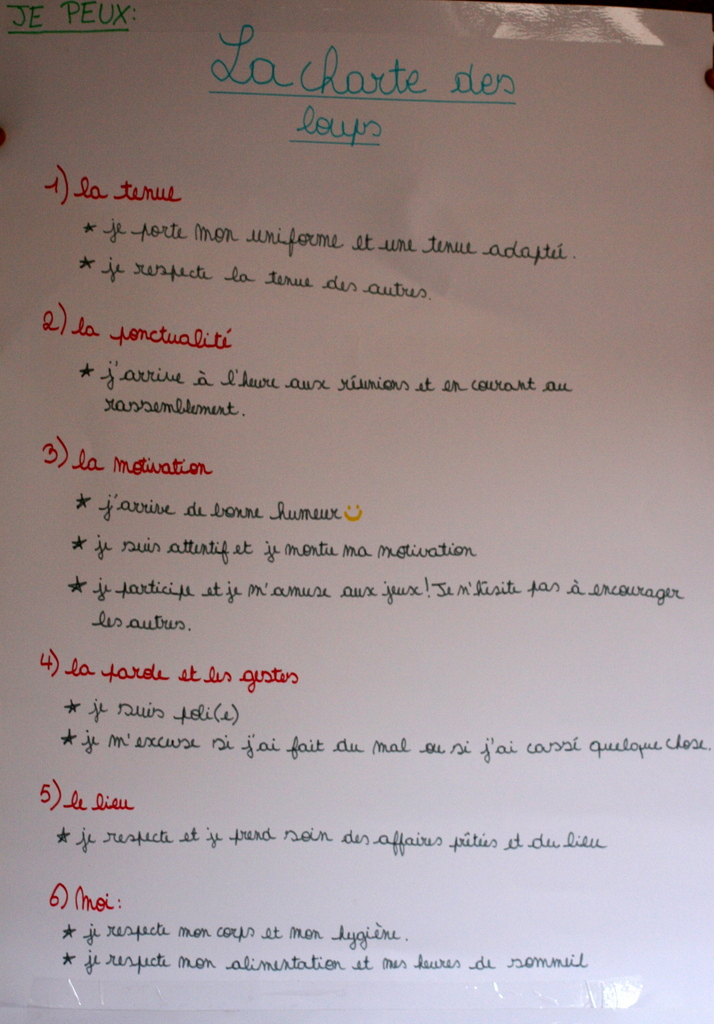 JE PEUX:
La charte des
loups
1) la tenue
* je porte mon uniforme et une tenue adaptée.
* je respecte la tenue des autres.
2) la ponctualité
* j'arrive à l'heure aux réunions et en courant au
rassemblement.
3) la motivation
* j'arrive de bonne humeur
* je suis attentif et je montre ma motivation
* je participe et je m'amuse aux jeux! Je n'hésite pas à encourager
les autres.
4) la parole et les gestes
* je suis poli(e)
* je m'excuse si j'ai fait du mal ou si j'ai cassé quelque chose.
5) le lieu
* je respecte et je prend soin des affaires prêtées et du lieu
6) Moi:
* je respecte mon corps et mon hygiène.
* je respecte mon alimentation et mes heures de sommeil